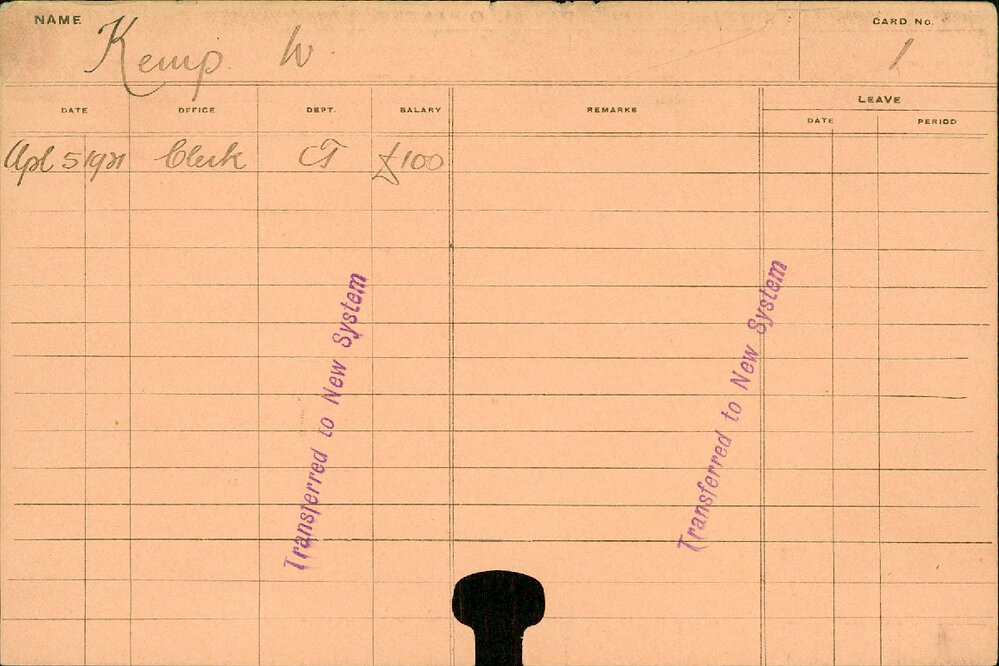 NAME CARD No.
Kemp. W. 1
LEAVE
DATE OFFICE DEPT. SALARY REMARKS DATE PERIOD
Apl 5 1921 Clerk CT £100
Transferred to New System
Transferred to New System